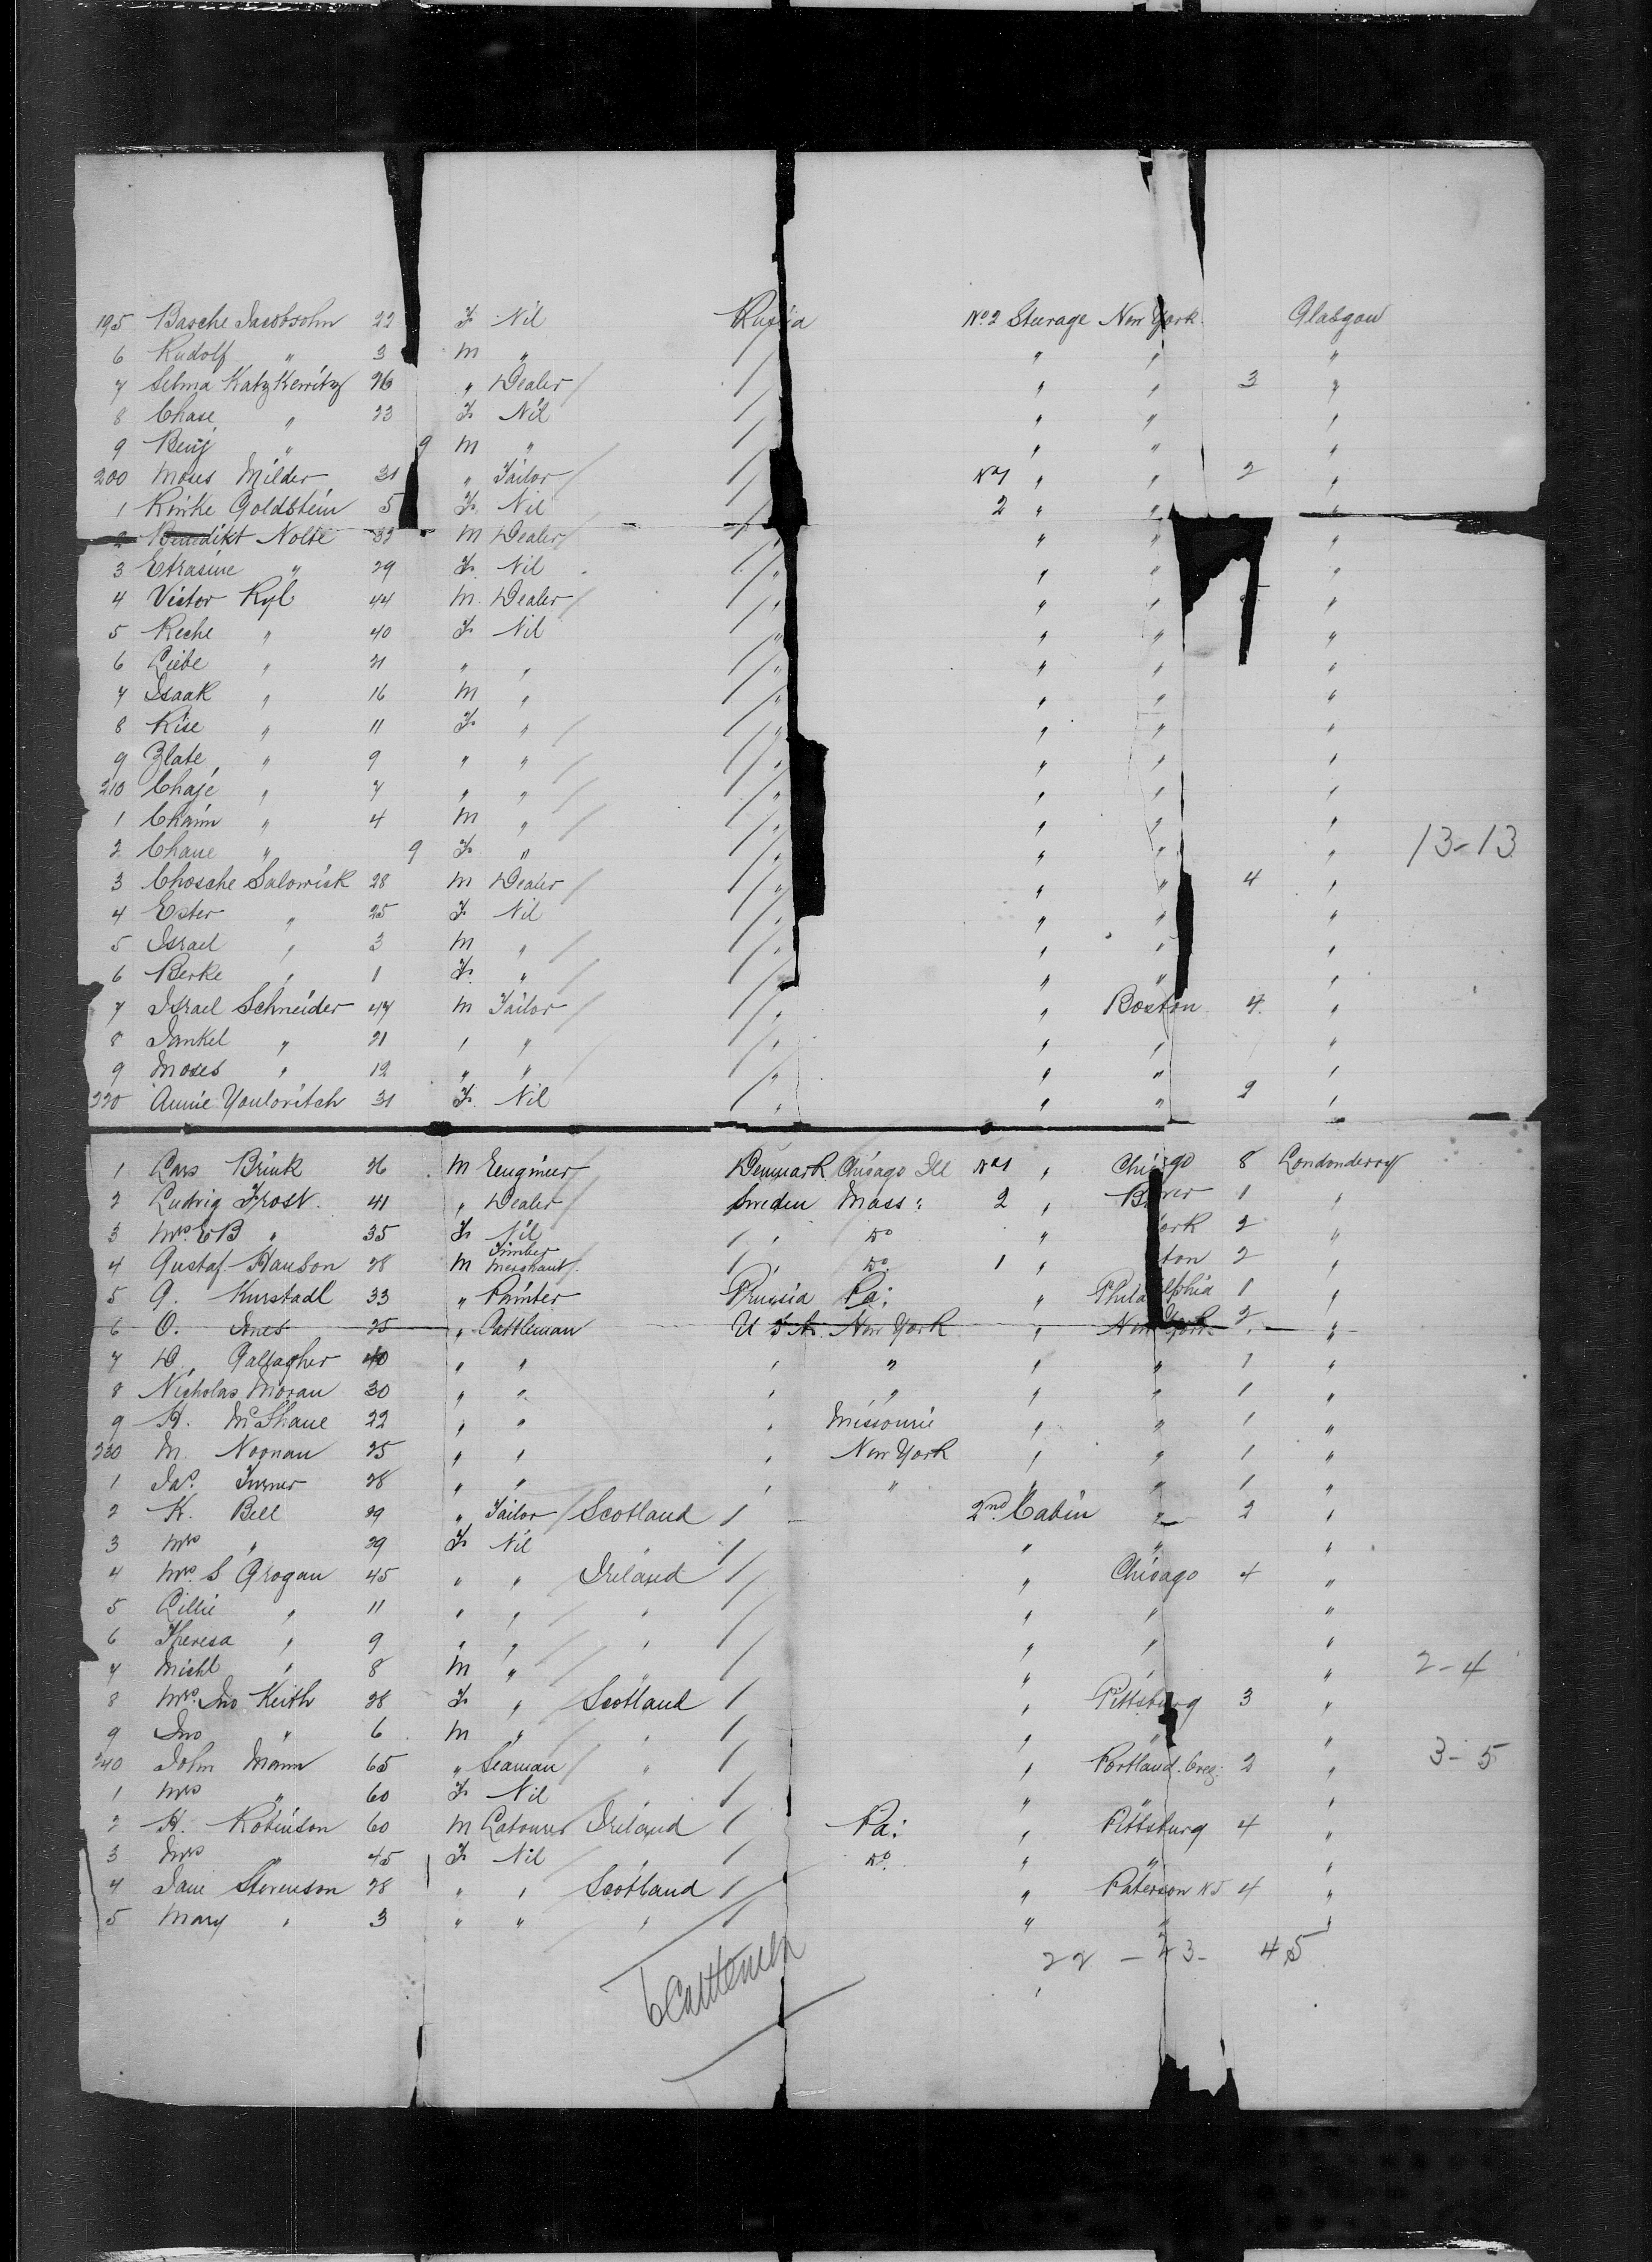 195 Basche Jacobsohn 22 F Nil Russia No 2 Steerage New York Glasgow
6 Rudolf " 3 M " " " " "
7 Selma Katzkewitz 26 " Dealer " " " 3 "
8 Chase " 23 F Nil " " " "
9 Benj " 9 M " " " " "
200 Moses Milder 31 " Tailor " No 1 " " 2 "
1 Goldstein 5 F Nil " 2 " " "
2 Benedikt Nolte 33 M Dealer " " " "
3 " 29 F Nil " " " "
4 Victor Kyl 44 M Dealer " " " "
5 Reche " 40 F Nil " " " "
6 Liebe " 21 " " " " " "
7 Isaak " 16 M " " " " "
8 Rise " 11 F " " " " "
9 Zlate " 9 " " " " " "
210 Chaje " 7 " " " " " "
1 Chaim " 4 M " " " " "
2 Chane " 9 F " " " " " 13-13
3 Chosche Salowisk 28 M Dealer " " " 4 "
4 Ester " 25 F Nil " " " "
5 Israel " 3 M " " " " "
6 Berke " 1 F " " " " "
7 Israel Schneider 47 M Tailor " " Boston 4 "
8 Jankel " 21 " " " " " "
9 Moses " 12 " " " " " "
220 Annie Youlovitch 31 F Nil " " " 2 "
1 Lars Brink 26 M Eengineer Denmark Chicago Ill No 1 " Chicago 8 Londonderry
2 Ludvig Frost 41 " Dealer Sweden Mass: 2 " 1 "
3 Mrs E B " 35 F Nil " Do " ork 2 "
4 Gustaf Hanson 28 M Timber Merchant " Do. 1 " ton 2 "
5 G. Kurstadl 33 " Painter Prussia Pa: " Philadelphia 1 "
6 O. Jones 25 " Cattleman U S A. New York " New York 2 "
7 D. Gallagher 40 " " " " " " 1 "
8 Nicholas Moran 30 " " " " " " 1 "
9 H. McShane 22 " " " Missourie " " 1 "
230 M. Noonan 25 " " " New York " " 1 "
1 Jas. Turner 28 " " " " " " 1 "
2 K. Bell 29 " Tailor Scotland 2nd Cabin " 2 "
3 Mrs " 29 F Nil " " "
4 Mrs S Grogan 45 " " Ireland " Chicago 4 "
5 Lillie " 11 " " " " " "
6 Theresa " 9 " " " " " "
7 Michl " 8 M " " " " " 2-4
8 Mrs. Jno Keith 28 F " Scotland " Pittsburg 3 "
9 Jno " 6 M " " " " "
240 John Mann 65 " Seaman " " Portland. Oreg. 2 " 3-5
1 Mrs " 60 F Nil " " "
2 H. Robinson 60 M Labourer Ireland Pa: " Pittsburg 4 "
3 Mrs " 45 F Nil " Do. " " "
4 Jane Stevenson 28 " " Scotland " Paterson NJ 4 "
5 Mary " 3 " " " " " "
22 - 23 - 45
6 Cattlemen